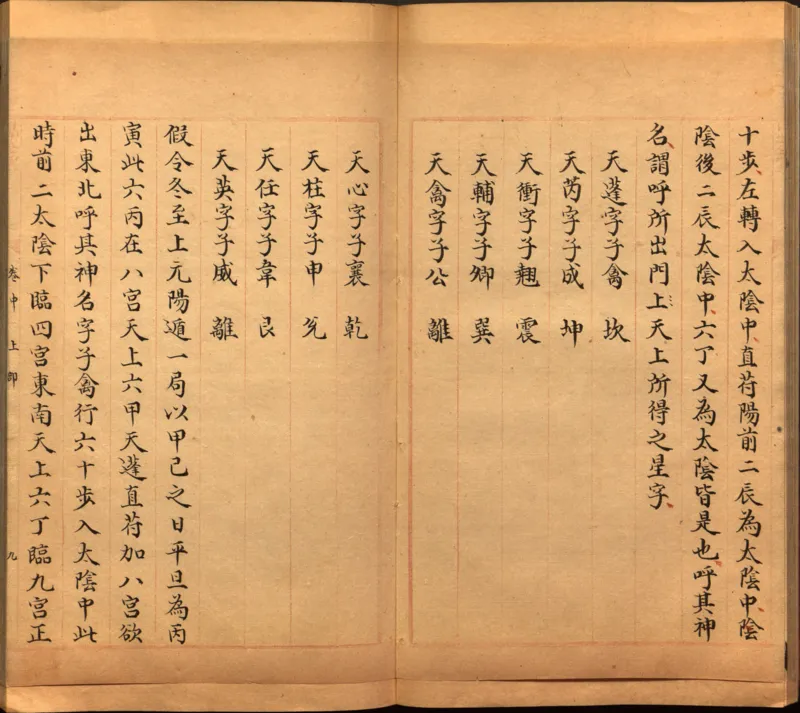 十步左轉入太陰中直苻陽前二辰為太陰中陰
陰後二辰太陰中六丁又為太陰皆是也呼其神
名謂呼所出門上天上所得之星字
天蓬字子禽 坎
天芮字子成 坤
天衝字子翹 震
天輔字子卿 巽
天禽字子公 離
天心字子襄 乾
天柱字子申 兊
天任字子韋 艮
天英字子威 離
假令冬至上元陽遁一局以甲己之日平旦為丙
寅此六丙在八宮天上六甲天蓬直苻加八宮欲
出東北呼其神名字子禽行六十步入太陰中此
時前二太陰下臨四宮東南天上六丁臨九宮正
卷中上 九